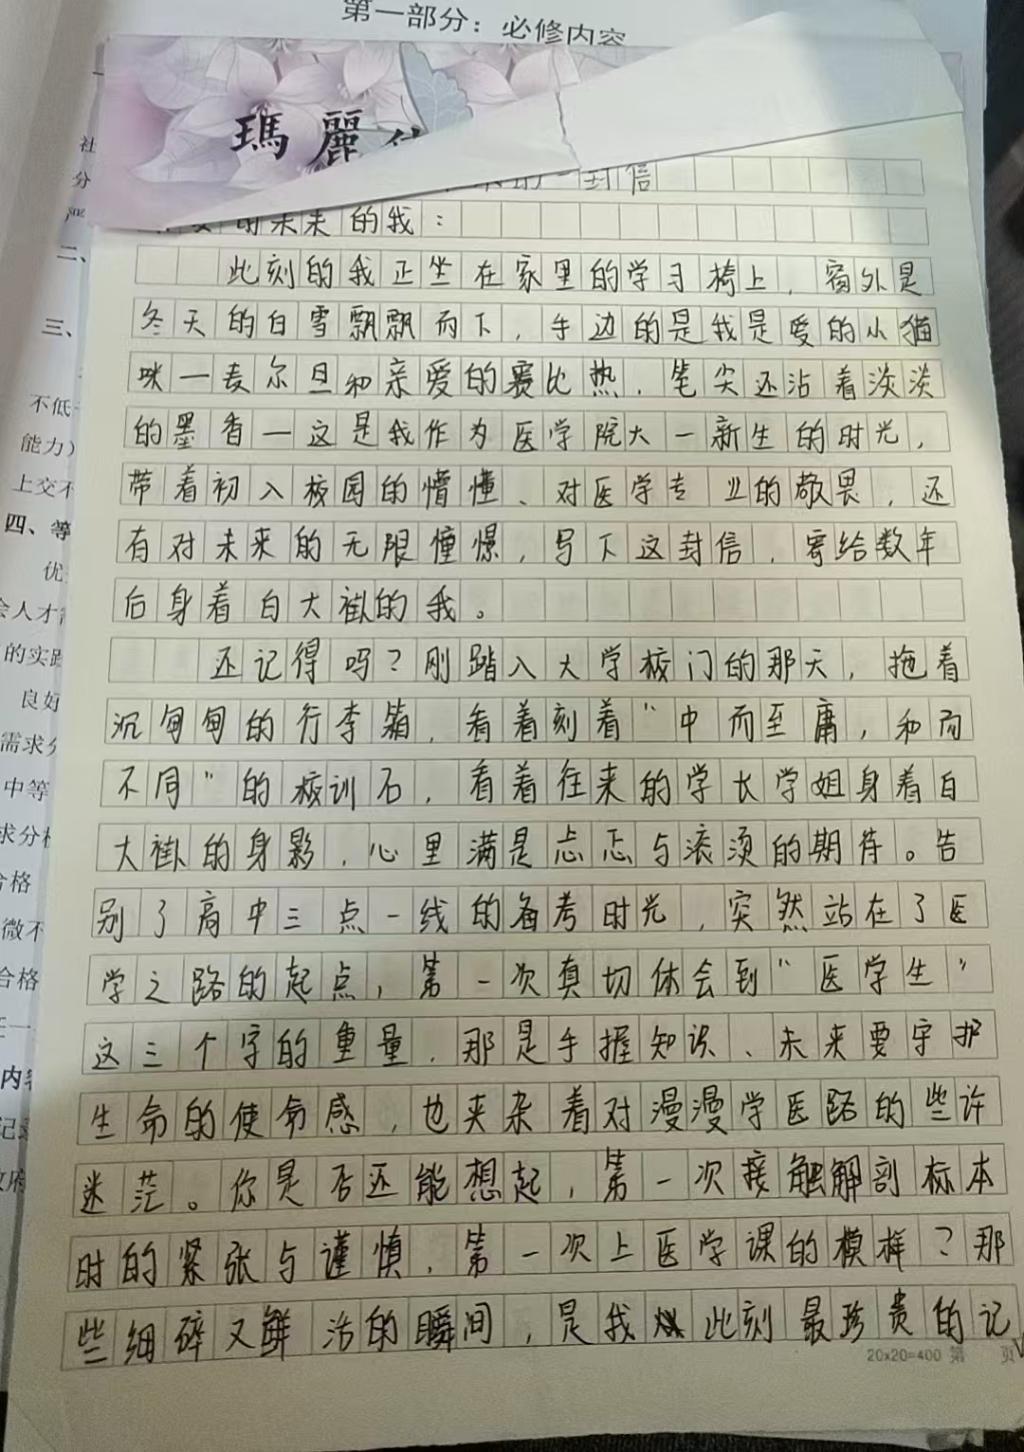 第一部分：必修内容
瑪麗
封信
未来的我：
此刻的我正坐在家里的学习椅上，窗外是
冬天的白雪飘飘而下，手边的是我最爱的小猫
咪一麦尔旦和亲爱的赛比热，笔尖还沾着淡淡
的墨香一这是我作为医学院大一新生的时光，
带着初入校园的懵懂、对医学专业的敬畏，还
有对未来的无限憧憬，写下这封信，寄给数年
后身着白大褂的我。
还记得吗？刚踏入大学校门的那天，拖着
沉甸甸的行李箱，看着刻着“中而至庸，和而
不同”的校训石，看着往来的学长学姐身着白
大褂的身影，心里满是忐忑与滚烫的期待。告
别了高中三点一线的备考时光，突然站在了医
学之路的起点，第一次真切体会到“医学生”
这三个字的重量，那是手握知识、未来要守护
生命的使命感，也夹杂着对漫漫学医路的些许
迷茫。你是否还能想起，第一次接触解剖标本
时的紧张与谨慎，第一次上医学课的模样？那
些细碎又鲜活的瞬间，是我此刻最珍贵的记
20x20=400 第 页
二、
三、
不低
能力）
上交不
四、等
优
会人才
的实践
良好
需求分
中等
求分析
合格
微不
合格
内容
记录
政府